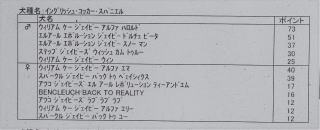 犬種名:イングリッシュ・コッカー・スパニエル
犬名 ポイント
♂ ウィリアム ケー ジェイビー アルファ ハロルド 73
エルアール エボルーション ジェイビー ドルチェ ビータ 51
エルアール エボルーション ジェイビー スノー マン 37
ステップ ジェイビーズ ウィッシュ カム トゥルー 30
ウィリアム ケー ジェイビー ウィン 25
♀ ウィリアム ケー ジェイビー アルファ エマ 40
スパークル ジェイビー バック トゥ ヘェイシィクス 39
アツコ ジェイビーズ エル アール レボリューション ティーアンドエム 17
BENCLEUCH BACK TO REALITY 16
アツコ ジェイビーズ ラブ ラブ ラブ 12
ウィリアム ケー ジェイビー アルファ エミリー 12
スパークル ジェイビー バック トゥ ユー 12